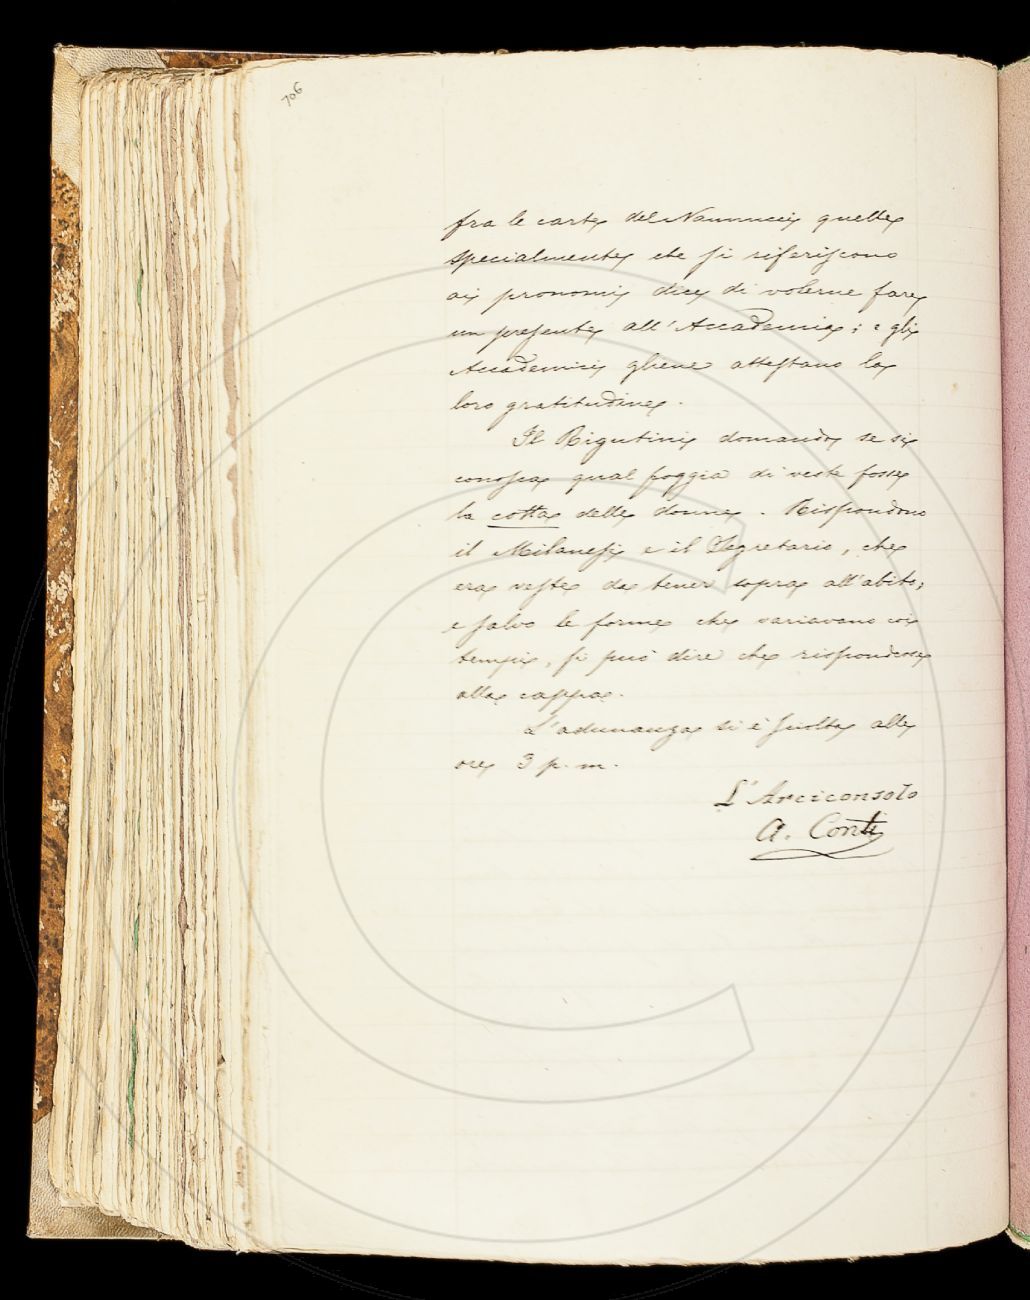 706
fra le carte del Nannucci quelle
specialmente che si riferiscono
ai pronomi dice di volerne fare
un presente all'Accademia; e gli
Accademici gliene attestano la
loro gratitudine.
Il Rigutini domanda se si
conosca qual foggia di veste fosse
la cotta delle donne. Rispondono
il Milanesi e il Segretario, che
era veste da tener sopra all'abito;
e salvo le forme che variavano coi
tempi, si può dire che rispondesse
alla cappa.
L'adunanza si è sciolta alle
ore 3 p. m.
L'Arciconsolo
A. Conti